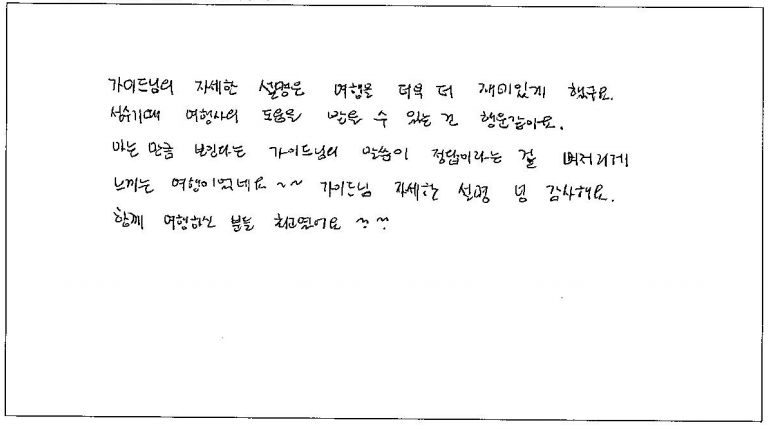 가이드님의 자세한 설명은 여행을 더욱 더 재미있게 했구요.
성수기때 여행사의 도움을 받을 수 있는 건 행운같아요.
아는 만큼 보인다는 가이드님의 말씀이 정답이라는 걸 뼈저리게
느끼는 여행이었네요 ~~ 가이드님 자세한 설명 넘 감사해요.
함께 여행하신 분들 최고였어요 ^^